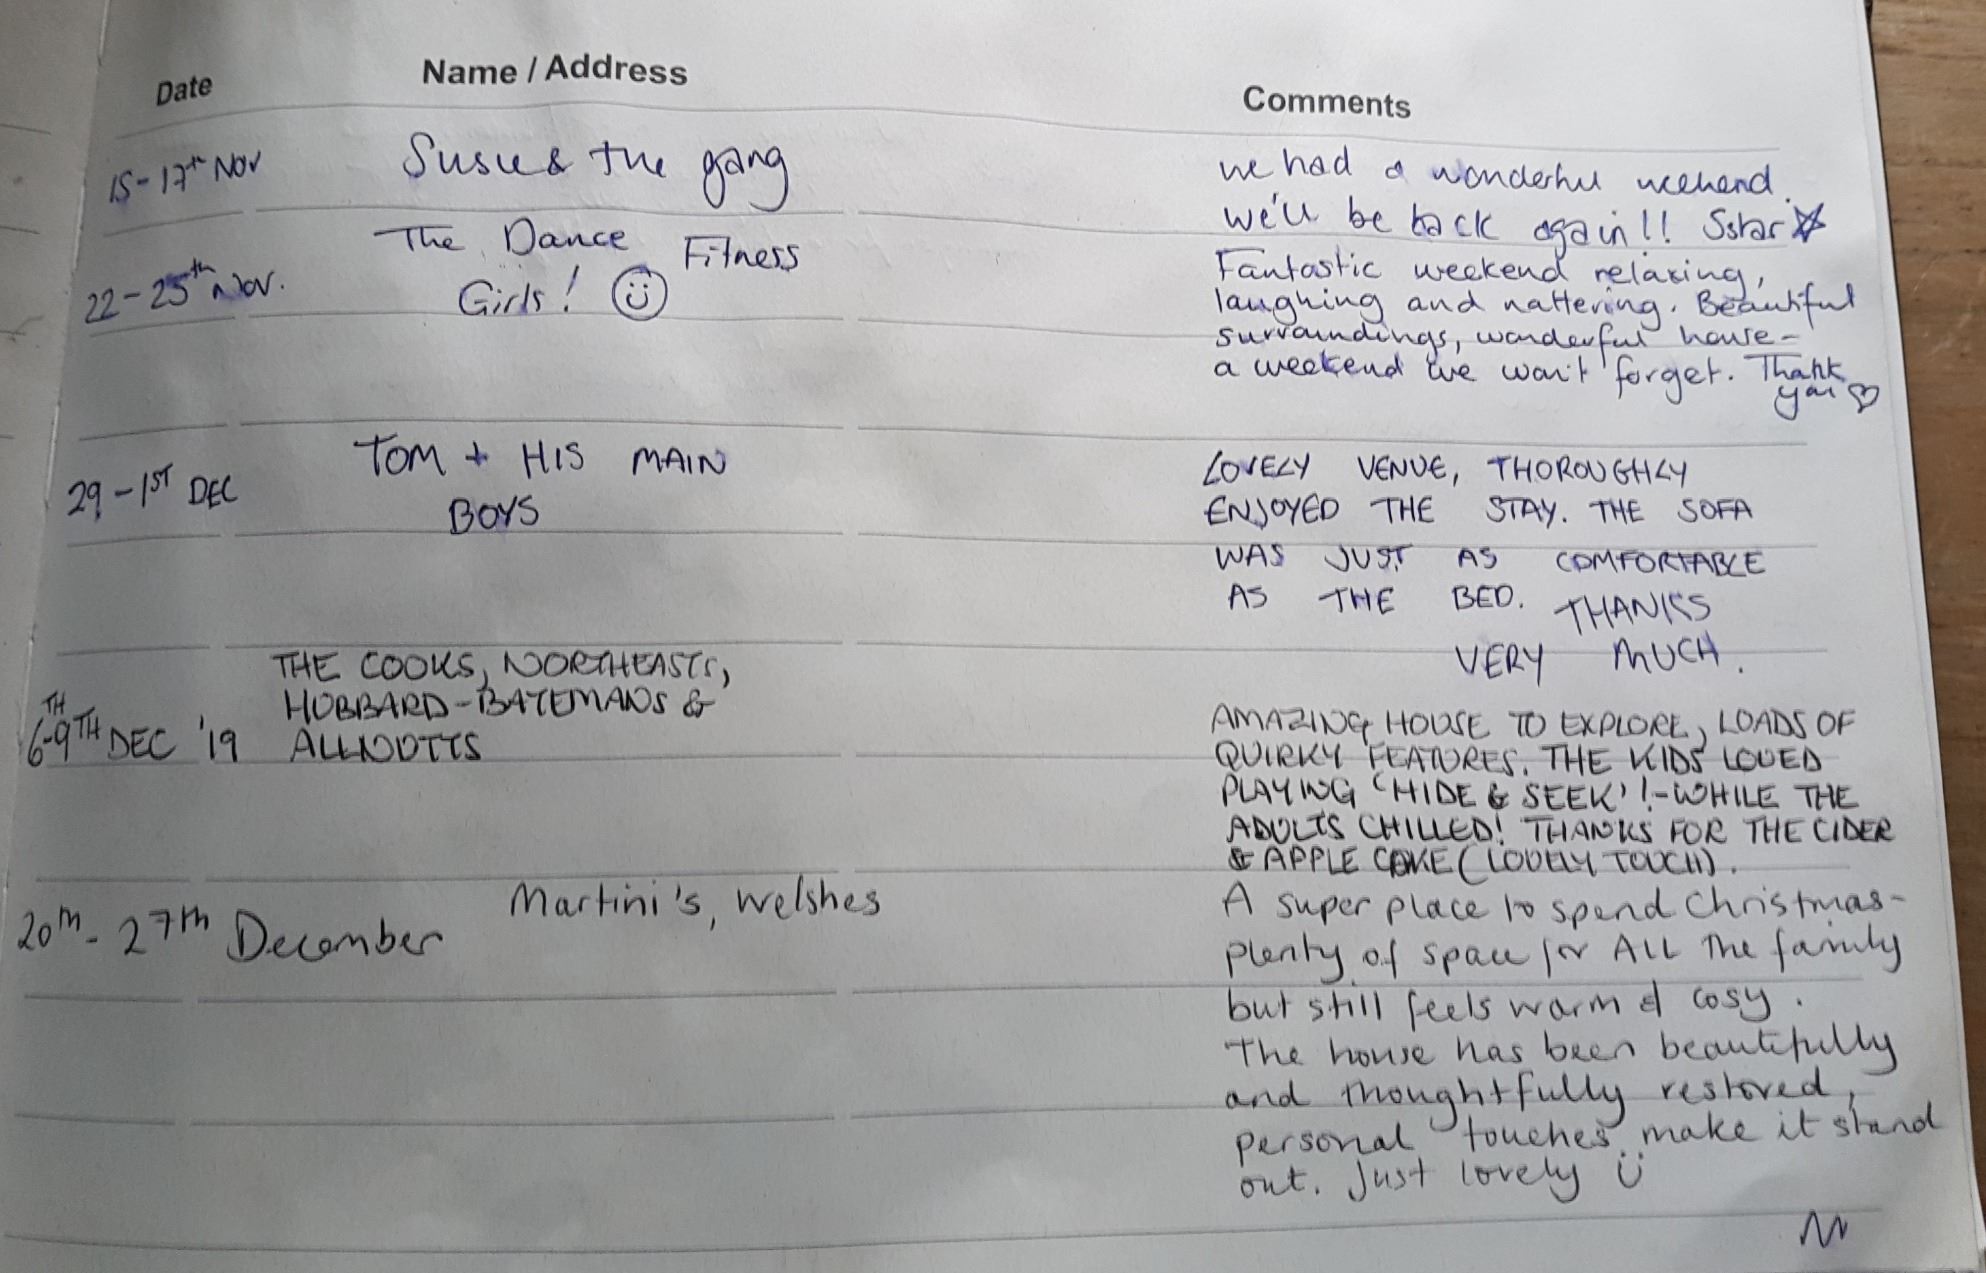 Date Name / Address Comments
15-17th Nov Susie & the gang
we had a wonderful weekend.
we'll be back again!! 5star
22-25th Nov. The Dance Fitness
Girls!
Fantastic weekend relaxing,
laughing and nattering. Beautiful
surroundings, wonderful house -
a weekend we won't forget. Thank
you
29-1ST DEC TOM + HIS MAIN
BOYS
LOVELY VENUE, THOROUGHLY
ENJOYED THE STAY. THE SOFA
WAS JUST AS COMFORTABLE
AS THE BED. THANKS
VERY MUCH.
6TH-9TH DEC '19 THE COOKS, NORTHEASTS,
HOBBARD-BATEMANS &
ALLNOTTS
AMAZING HOUSE TO EXPLORE, LOADS OF
QUIRKY FEATURES. THE KIDS LOVED
PLAYING 'HIDE & SEEK'! - WHILE THE
ADULTS CHILLED! THANKS FOR THE CIDER
& APPLE CAKE (LOVELY TOUCH).
20th - 27th December Martini's, Welshes
A super place to spend Christmas -
plenty of space for ALL the family
but still feels warm & cosy.
The house has been beautifully
and thoughtfully restored,
personal touches make it stand
out. Just lovely